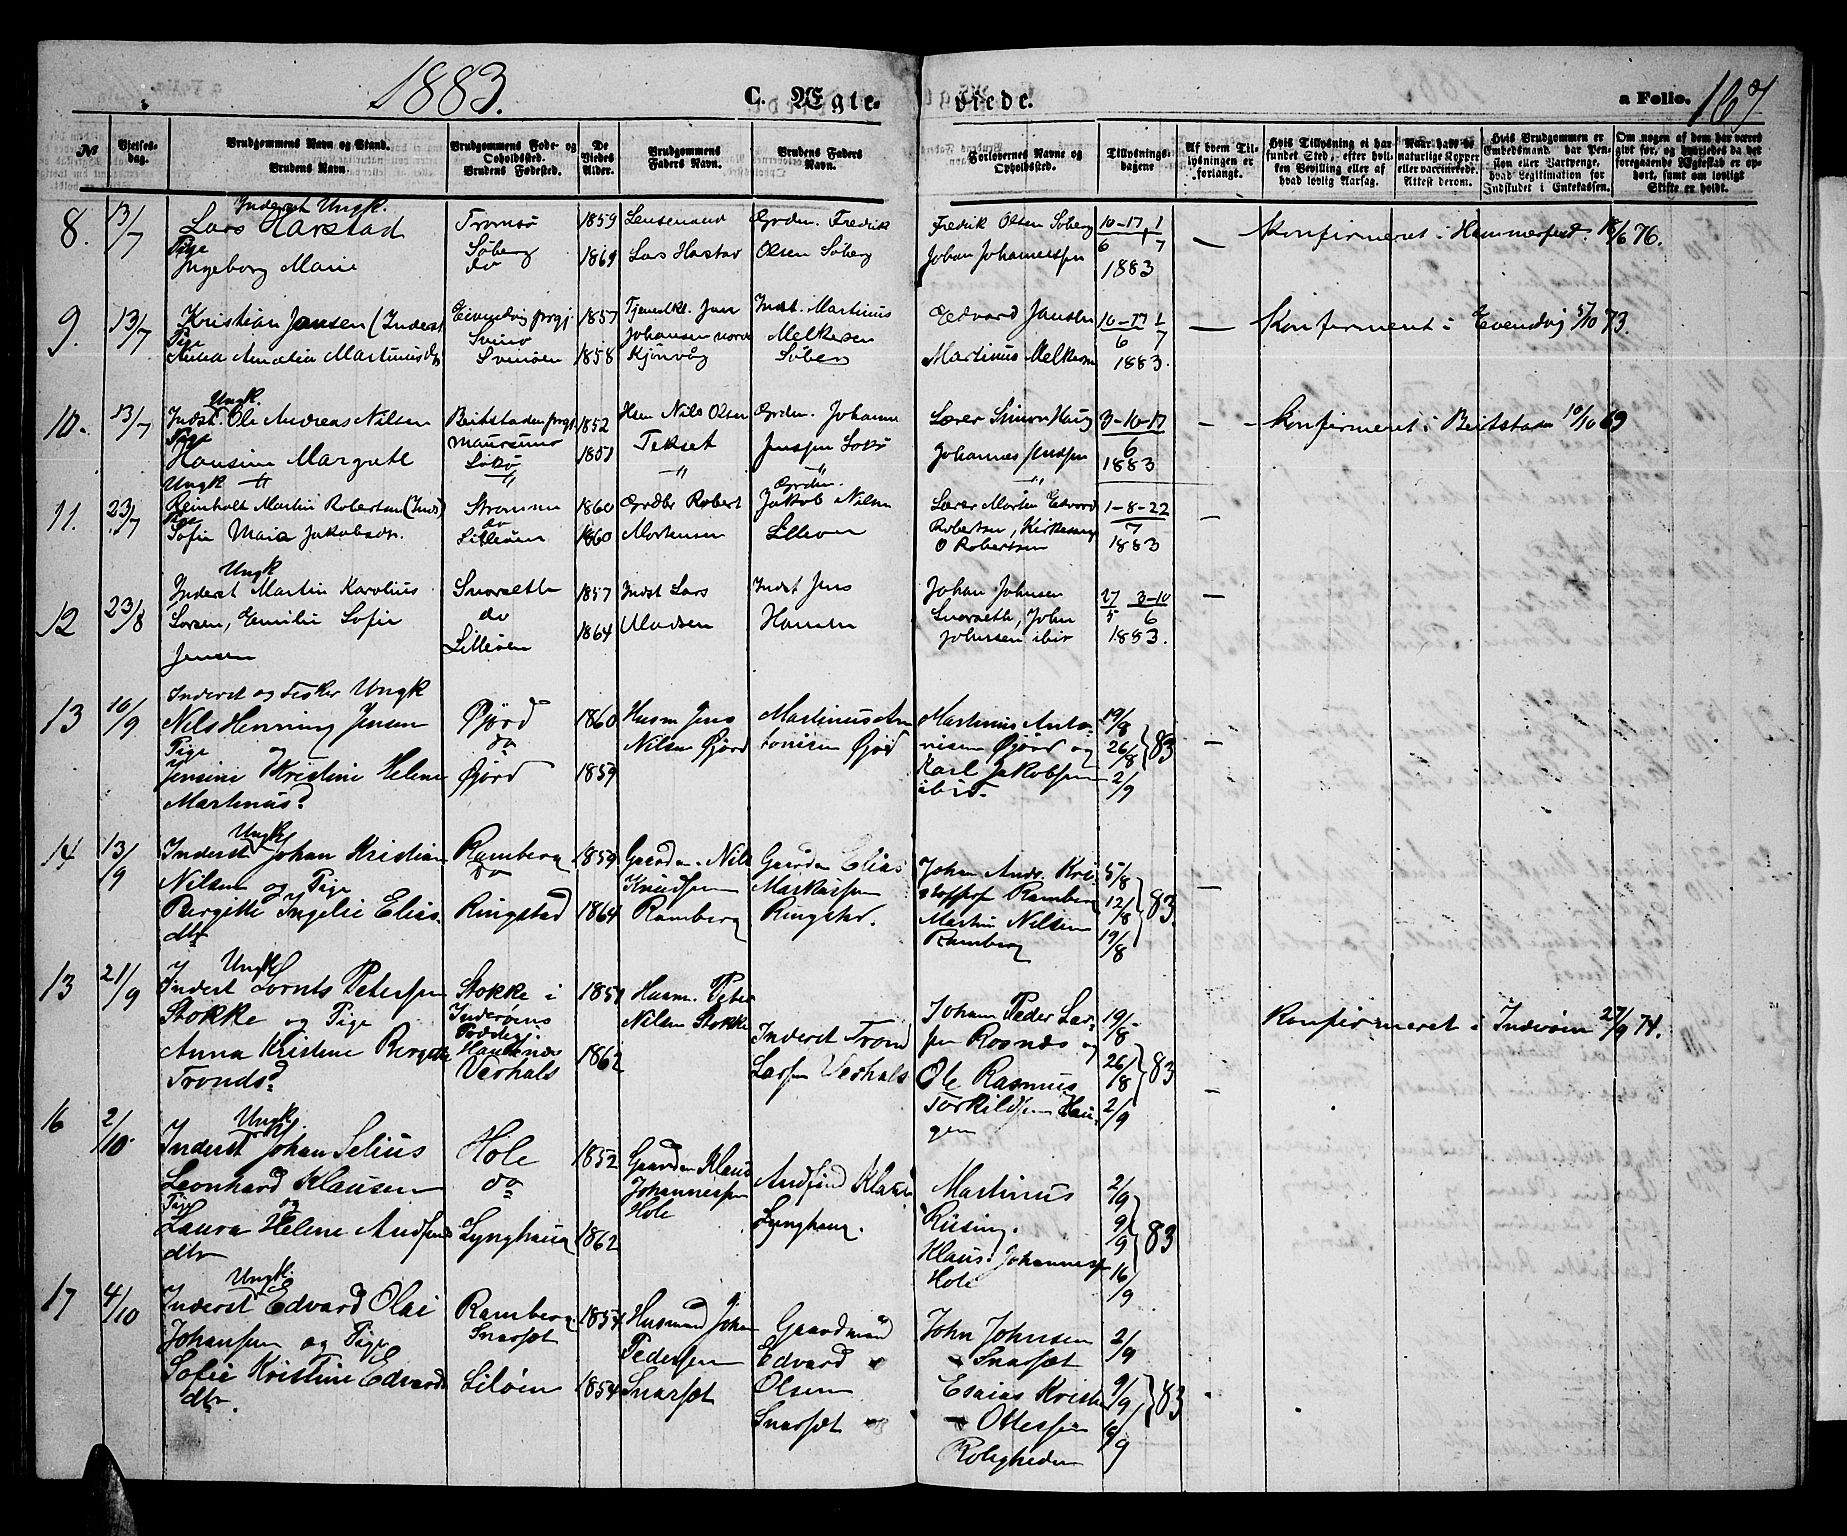 1883.
C. Ægte-
viede.
a Folio. 167
№
Vielses-
dag.
Brudgommens Navn og Stand.
Brudens Navn.
Brudgommens Føde- og
Opholdssted.
Brudens Fødested.
De
Viedes
Alder.
Brudgommens
Faders Navn.
Brudens Faders
Navn.
Forlovernes Navne og
Opholdssted.
Tillysnings-
dagene
Af hvem Til-
lysningen er
forlangt.
Hvis Tillysning ei har
fundet Sted, efter hvil-
ken Bevilling eller af
hvad lovlig Aarsag.
Naar havt de
naturlige Kopper
eller vaccinerede.
Attest derom.
Hvis Brudgommen er
Embedsmand har Pen-
sion eller Vartpenge,
hvad Legitimation for
Indskudet i Enkekassen.
Om nogen af dem har været
gift før, og hvorledes da det
foregaaende Ægteskab er op-
hørt, samt om lovligt
Skifte er holdt.
8. 13/7
Inderst Ungk.
Lars Harstad
Pige
Ingeborg Marie
Tromsø
Søberg
do
1859
1869
Lars Harstad
Grdm. Fredrik
Olsen Søberg
Fredrik Olsen Søberg
Johan Johannessen
10-17 1
6 7
1883
—
Konfirmeret i Hammerfest 18/6 76.
9. 13/7
Kristian Jansen (Inderst
Pige
Anna Amalia Martinusd.
Eivindvig prgj
Svinø
Svinøen
1857
1858
Johansen
Indst. Martinus
Melkersen
Søberg
Edvard Jansen
Martinus Melkersen
10-17 1
6 7
1883.
—
Konfirmeret i Evendvig 5/10 73.
10. 13/7
Ungk.
Indst. Ole Andreas Nilsen
Pige
Hansine Margrete
Beitstaden prgj.
Maursund
1852
1857
Hsm Nils Olsen
Tekset
Grdm. Johannes
Jenssen
Lærer Simon Haug
Johannes Jenssen
3-10-17
6
1883
—
Konfirmeret i Beitstaden 10/10 69
11. 23/7
Ungk
Reinholt Martin Robertsen (Inds)
Pige
Sofie Maria Jakobsdtr.
Strømme
do
Lilleøen
1860
1860
Grdbr Robert
Mortensen
Grdm.
Jakob Nilsen
Lilleøen
Lærer Morten Edvard
Robertsen, Kirkesang
O Robertsen
1-8-22
7
1883
—
12 23/8
Ungk
Inderst Martin Karolius
Larsen, Emilie Sofie
Jensen
Snarseth
do
Lilleøen
1857
1864
Indst Lars
Madsen
Indst Jens
Hansen
Johan Johnsen
Snarseth, John
Johnsen ibid
27 3-10
5 6
1883.
—
13 16/9
Inderst og Fisker Ungk
Nils Henning Jensen
Pige
Jensine Kristine Helene
Martinusd.
Øjord
do
Øjord
1860
1859
Husm Jens
Nilsen Øjord
Martinus An
tonisen Øjord
Martinus Anto-
nisen Øjord og
Karl Jakobsen
ibid.
19/8
26/8 } 83
2/9
—
14 13/9
Ungk
Inderst Johan Kristian
Nilsen og Pige
Bergitte Ingelie Elias.
dtr
Ramberg
Do
Ringstad
1859
1864
Gaardm. Nils
Knudsen
Ramberg
Gaardm Elias
Markussen
Ringstad.
Johan Andr. Kri-
stoffersen Ramberg
Martin Nilsen
Ramberg
5/8
12/8 } 83
19/8
—
13 21/9
Ungk
Inderst Lornts Peterssen
Stokke og Pige
Anna Kristine Bergitte
Trondsd.
Stokke i
Inderøens
Præstegj
Verhals
1857
1862
Husm. Peter
Nilsen Stokke
Inderst Trond
Larsen Verhals
Johan Peder Lar-
sen Rosnæs og
Ole Rasmus
Torkildsen Hau-
gen
19/8
26/8 } 83
2/9
—
Konfirmeret i Inderøen 27/9 74.
16 2/10
Ungk.
Inderst Johan Selius
Leonhard Klausen
og
Pige
Laura Helene Andfinds
dtr
Hole
do
Lynghaug
1852
1862
Gaardm Klaus
Johannessen
Hole
Andfind Klausen
Lynghaug.
Martinus
Rising.
Klaus Johannessen
Hole
2/9
9/9 } 83
16/9
17 4/10
Ungk.
Inderst Edvard Olai
Johansen og Pige
Sofie Kristine Edvards
dtr.
Ramberg
Snarset
Liløen
1854
1854
Husmand Johan
Pedersen
Snarset
Gaardmand
Edvard
Olsen
Snarset
John Johnsen
Snarset
Esaias Krist.
Ottessen
Roligheden
2/9
9/9 } 83
16/9